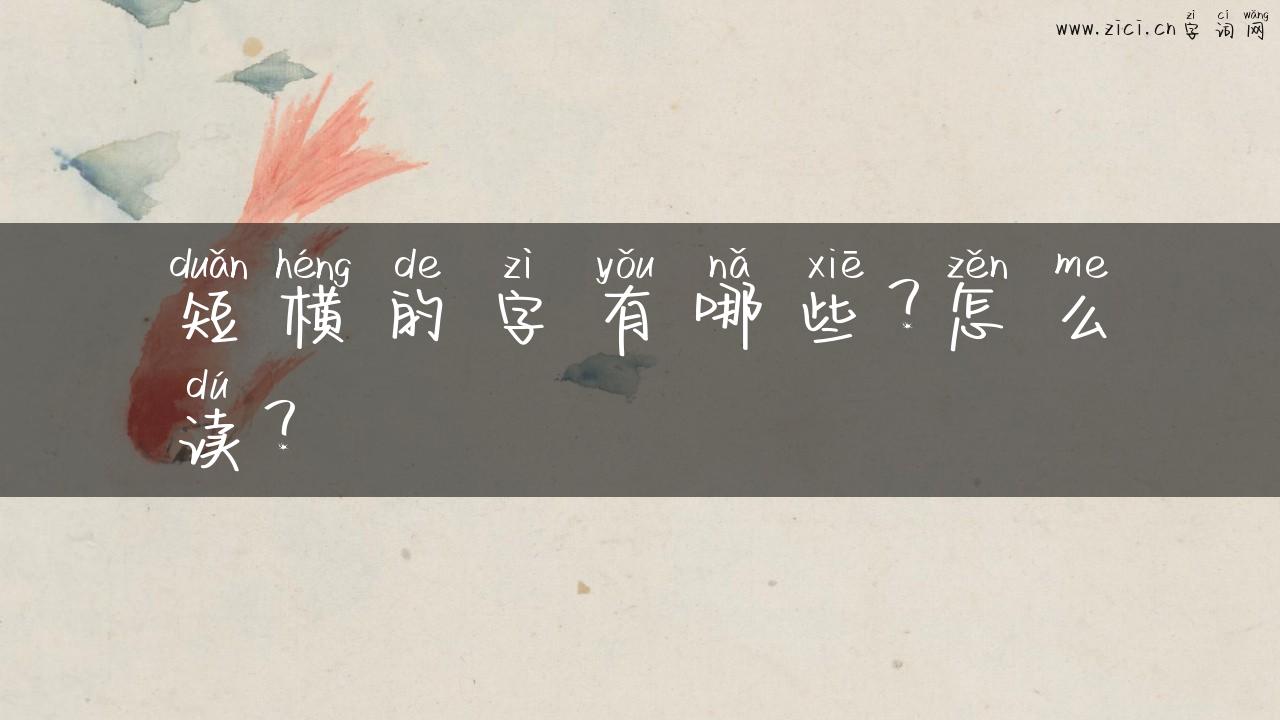 zì cí wǎng
www.zici.cn 字词网
duǎn héng de zì yǒu nǎ xiē zěn me
短横的字有哪些？怎么
dú
读？